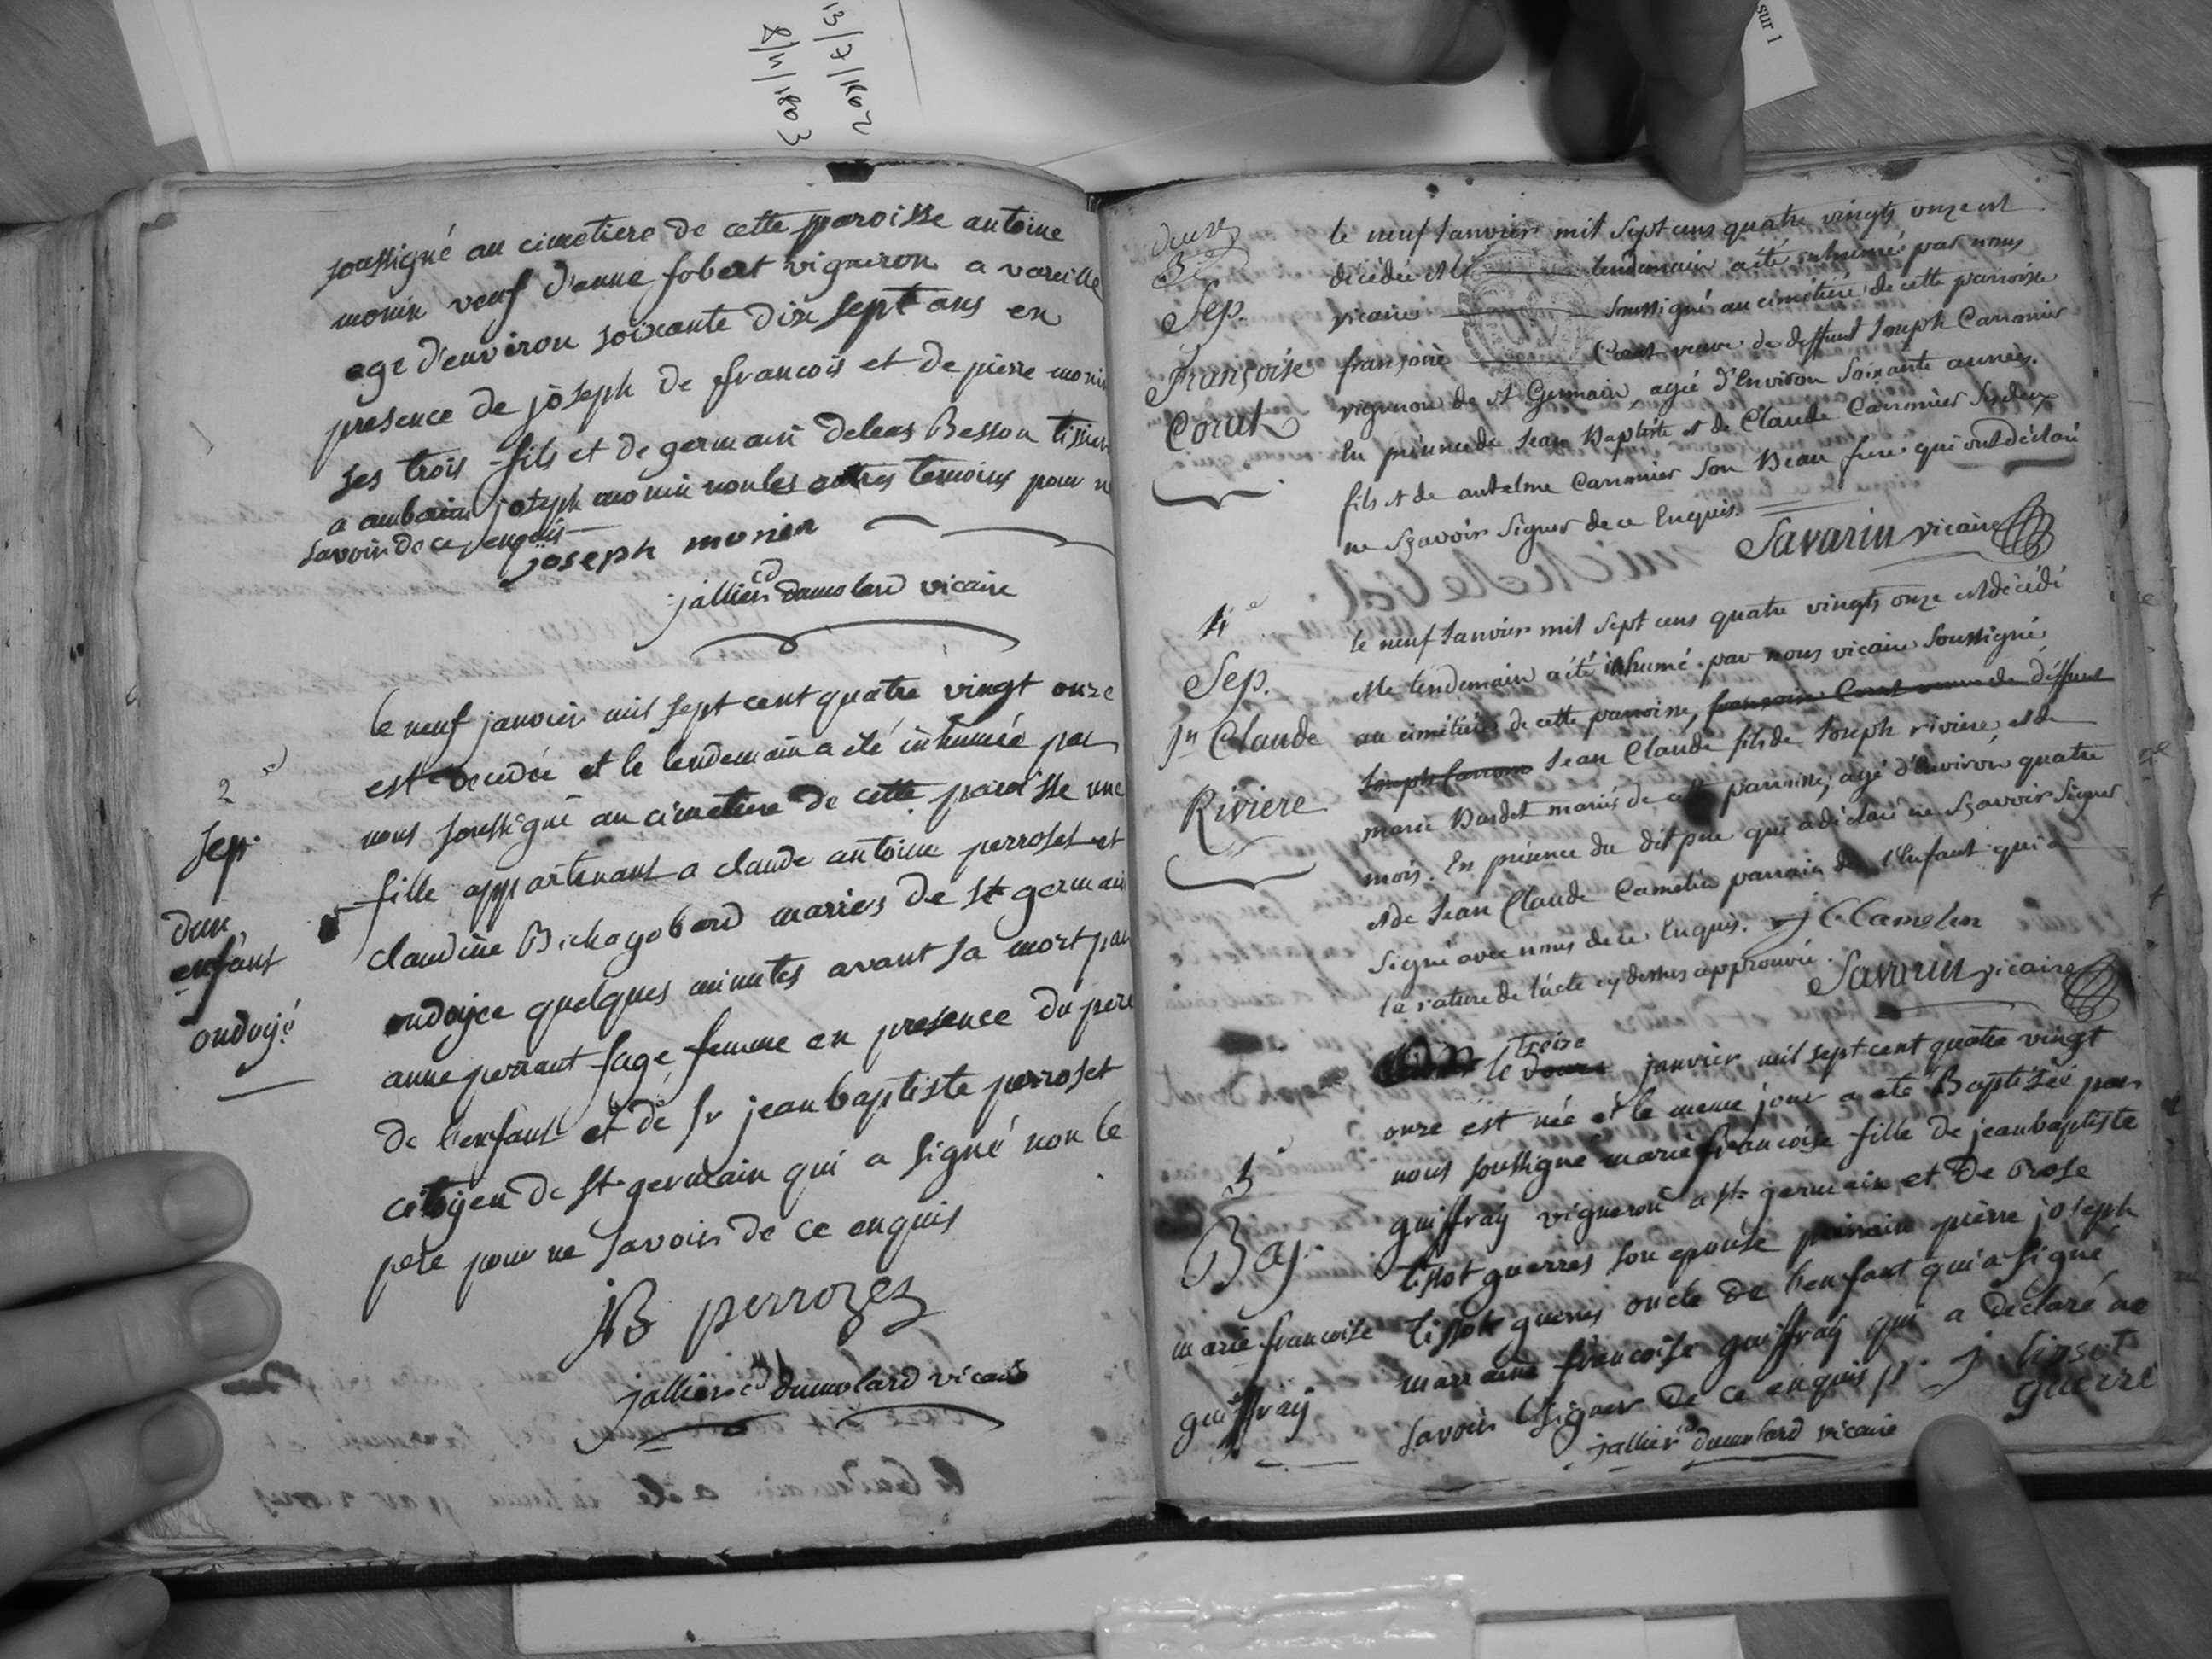 13/7/1802
8/4/1803
sur 1
soussigné au cimetiere de cette paroisse antoine
monin veuf d'anne fobert vigneron a vareille
age d'environ soixante dix sept ans en
presence de joseph de francois et de pierre monin
ses trois fils et de germain Besson tissier
a ambarin joseph monin non les autres temoins pour n
savoir de ce enquis
joseph monin
jallier cd dumolard vicaire
le neuf janvier mil sept cent quatre vingt onze
est decedée et le lendemain a été inhumée par
nous soussigné au cimetiere de cette paroisse une
fille appartenant a claude antoine perroset et
claudine Bichagobard mariés de st germain
ondoyée quelques minutes avant sa mort par
anne perrant sage femme en presence du pere
de l'enfant et de sr jean baptiste perroset
citoyen de st germain qui a signé non le
pere pour ne savoir de ce enquis
JB perrozet
jallier cd dumolard vicaire
2e
Sep.
dun
enfant
ondoyé
3e
Sep.
Françoise
Corut
le neuf Janvier mil Sept cens quatre vingts onze est
décédée et le lendemain a été inhumée par nous
vicaire soussigné au cimétiére de cette parroisse
françoise Corut veuve de deffunt Joseph Carronier
vigneron de St Germain, agée d'Environ Soixante années.
En présence de Jean Baptiste et de Claude Carronier Ses deux
fils et de antelme Carronier Son Beau frere qui ont déclaré
ne Sçavoir Signer de ce Enquis.
Savarin vicaire
4e
Sep.
Jn Claude
Riviere
le neuf Janvier mil Sept cens quatre vingts onze est décédé
et le lendemain a été inhumé par nous vicaire Soussigné
au cimétiére de cette parroisse, françoise Corut veuve de déffunt
Joseph Carronier Jean Claude fils de Joseph riviere, et de
marie Burdet mariés de cette parroisse, agé d'Environ quatre
mois. En présence du dit pere qui a déclaré ne Sçavoir Signer
et de Jean Claude Camelin parrain de l'Enfant qui a
Signé avec nous de ce Enquis. J C Camelin
la rature de l'acte cy dessus approuvée.
Savarin vicaire
treize
le douze janvier mil sept cent quatre vingt
onze est née et le meme jour a été Baptisée par
nous soussigné marie francoise fille de jean baptiste
guiffray vigneron a st germain et de rose
tissot guerres son epouse parrain pierre joseph
tissot guerres oncle de l'enfant qui a signé
marraine francoise guiffray qui a declaré ne
savoir signer de ce enquis p. j. tissot
guerre
jallier cd dumolard vicaire
5
Bap.
marie francoise
guiffray